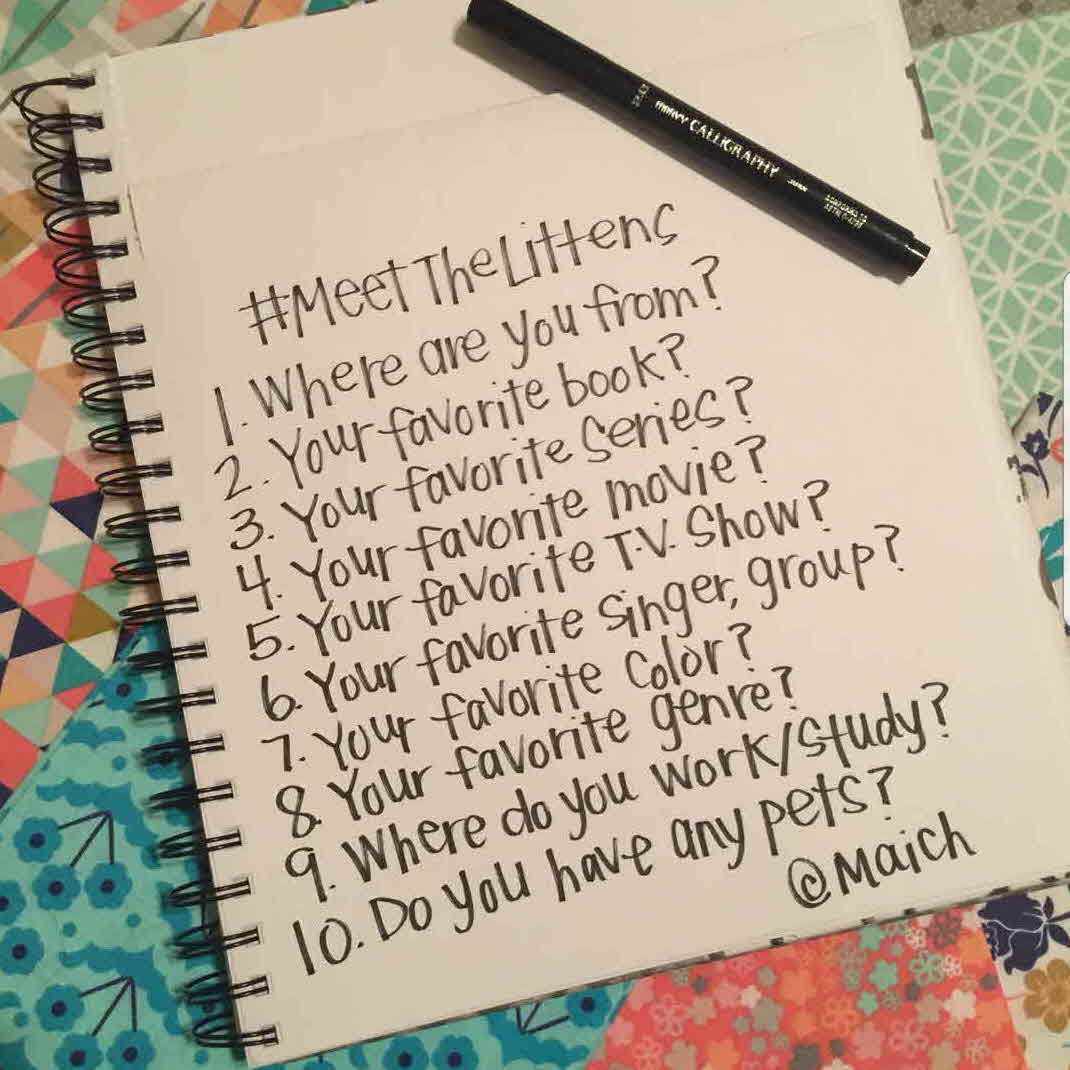 marvy CALLIGRAPHY JAPAN
CONFORMS TO
#MeetTheLittens
1. Where are you from?
2. Your favorite book?
3. Your favorite series?
4. Your favorite movie?
5. Your favorite T.V. Show?
6. Your favorite singer, group?
7. Your favorite Color?
8. Your favorite genre?
9. Where do you work/study?
10. Do you have any pets?
@Maich